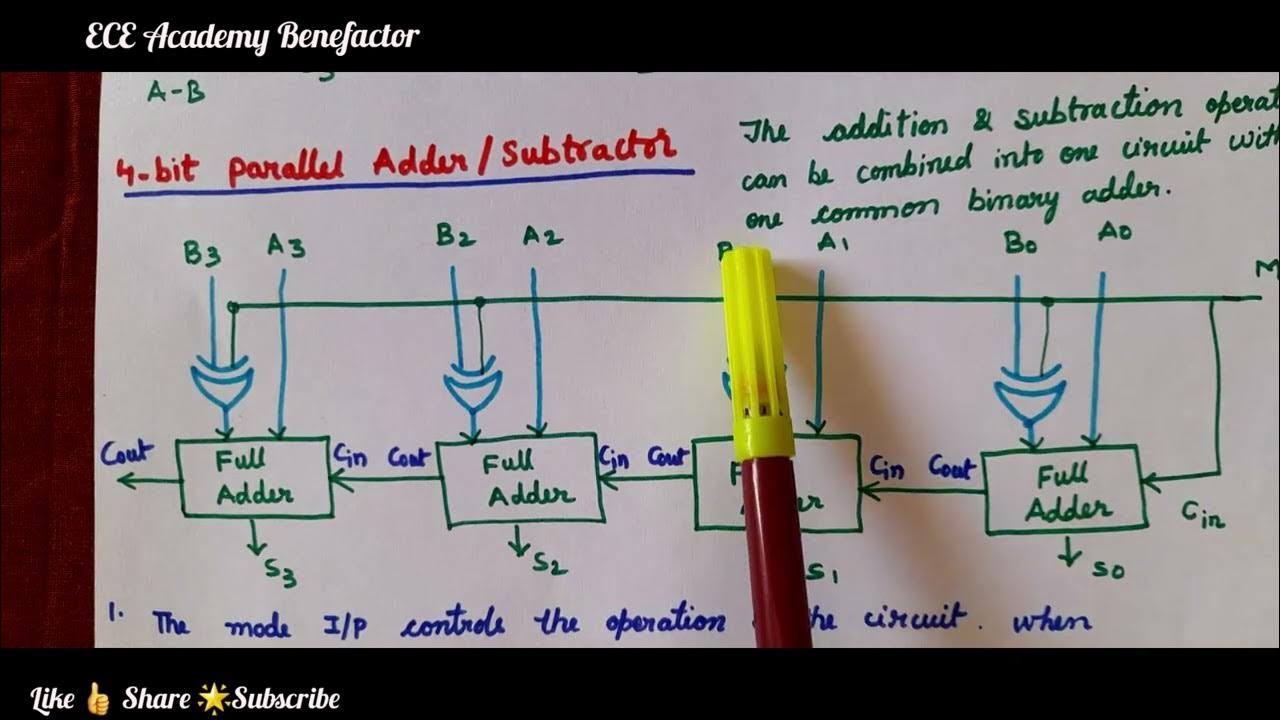 ECE Academy Benefactor
A-B
4-bit parallel Adder/Subtractor
The addition & subtraction operat
can be combined into one circuit with
one common binary adder.
B3 A3 B2 A2 A1 B0 A0
M
Cout Full Adder Cin Cout Full Adder Cin Cout Cin Cout Full Adder Cin
S3 S2 S1 S0
1. The mode I/P controls the operation the circuit. when
Like 👍 Share 🌟Subscribe